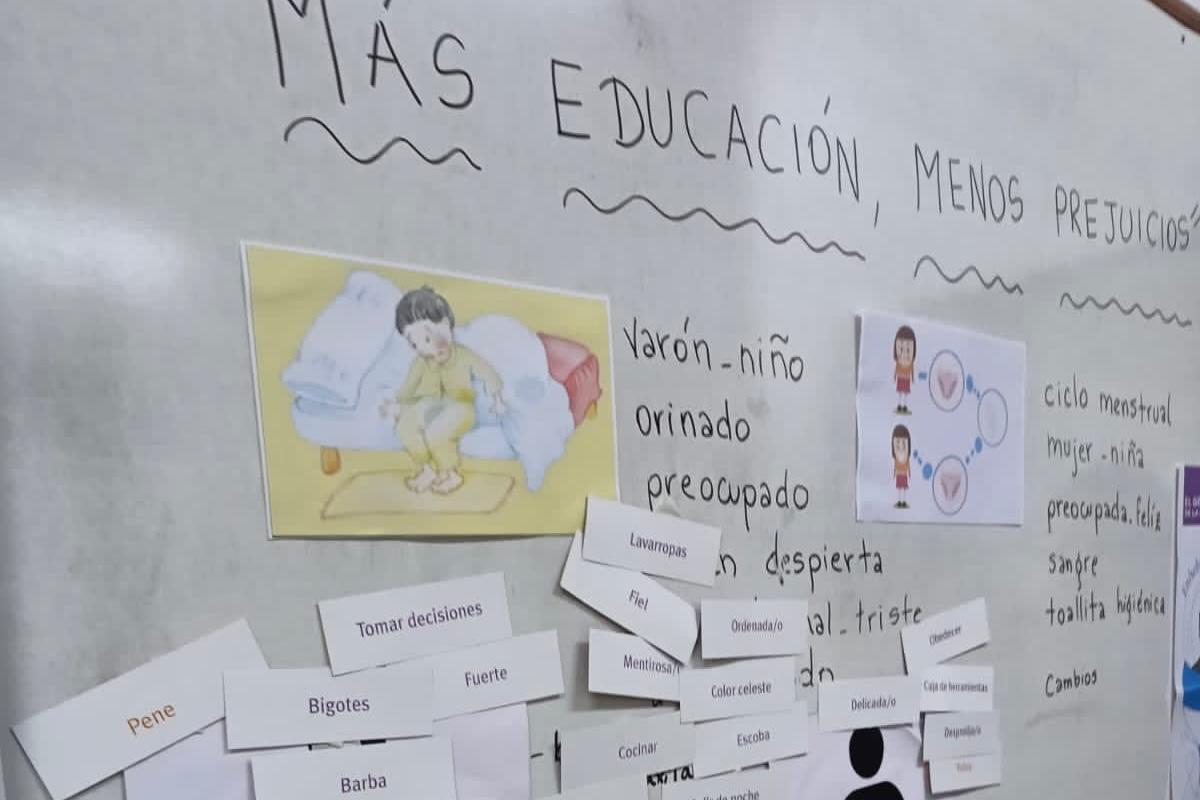 MÁS EDUCACIÓN, MENOS PREJUICIOS"
varón-niño
orinado
preocupado
despierta
triste
ciclo menstrual
mujer-niña
preocupada.feliz
sangre
toallita higiénica
cambios
Lavarropas
Fiel
Ordenada/o
Obedecer
Tomar decisiones
Mentirosa/
Color celeste
Delicada/o
Caja de herramientas
Fuerte
Pene
Bigotes
Cocinar
Escoba
Barba
noche